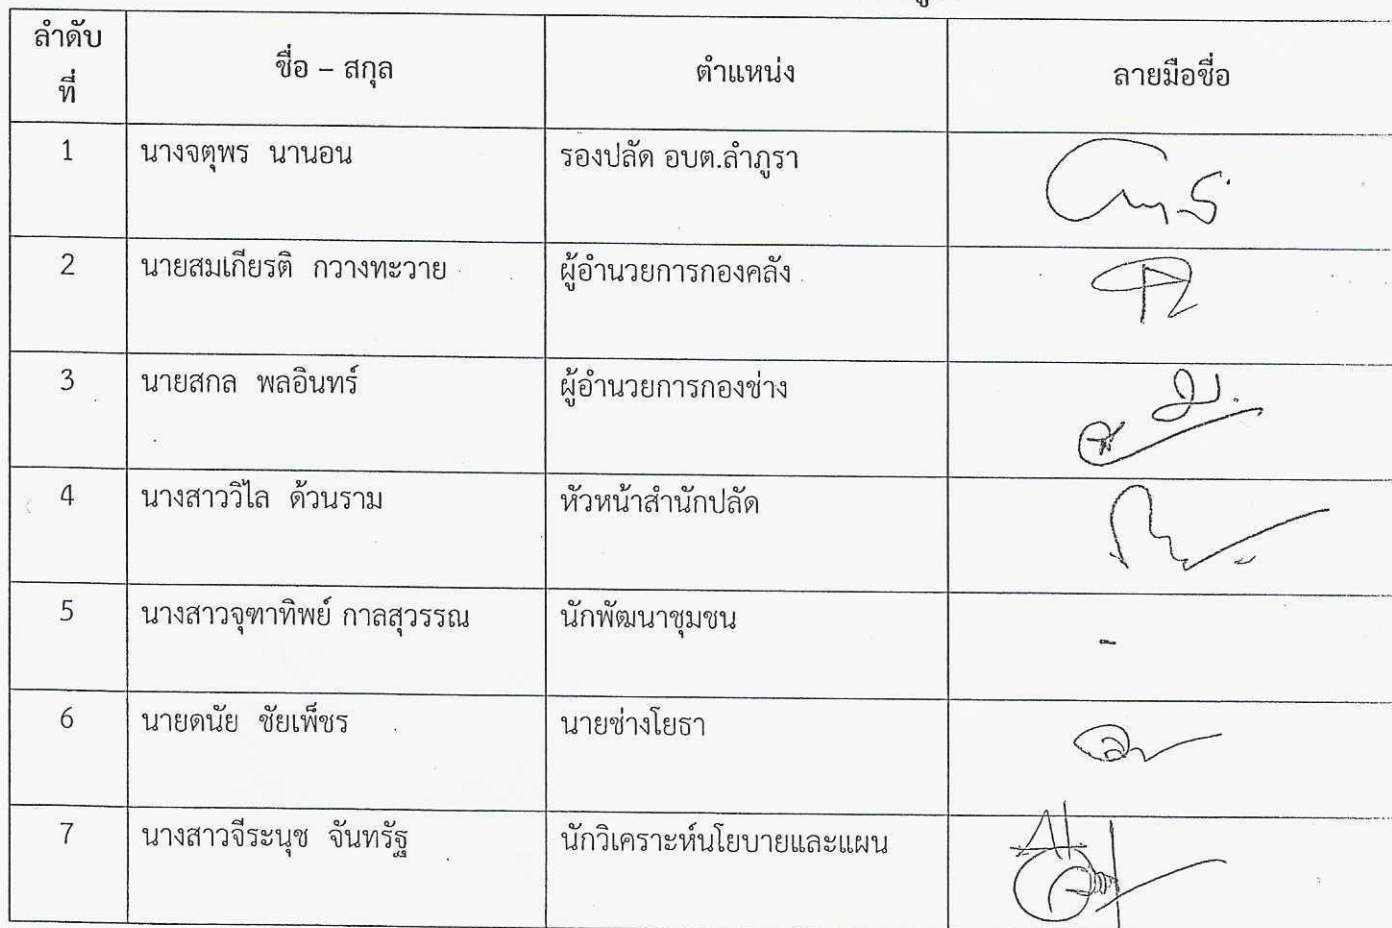 ลำดับ
ที่
ชื่อ – สกุล
ตำแหน่ง
ลายมือชื่อ
1 นางจตุพร นานอน รองปลัด อบต.ลำภูรา
2 นายสมเกียรติ กวางทะวาย ผู้อำนวยการกองคลัง
3 นายสกล พลอินทร์ ผู้อำนวยการกองช่าง
4 นางสาววิไล ด้วนราม หัวหน้าสำนักปลัด
5 นางสาวจุฑาทิพย์ กาลสุวรรณ นักพัฒนาชุมชน -
6 นายดนัย ชัยเพ็ชร นายช่างโยธา
7 นางสาวจีระนุช จันทรัฐ นักวิเคราะห์นโยบายและแผน